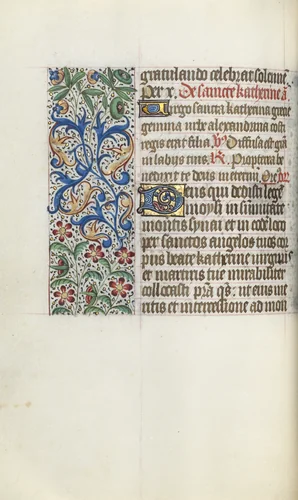 gratulando celebrat solemn̄.
Per x̄. De sancte Katherine ā.
Virgo sancta katherina grecie
gemma urbe alexandrina costi
regis erat filia. V̄. Diffusa est grā
in labijs tuis. R̄. Propterea be
nedixit te deus in eternū. Orō
Deus qui dedisti legē
moysi in summitate
montis synai et in eodē loco
per sanctos angelos tuos cor
pus beate katherine virginis
et martiris tue mirabiliter
collocasti p̄sta q̄s: ut eius me
ritis et intercessione ad mon